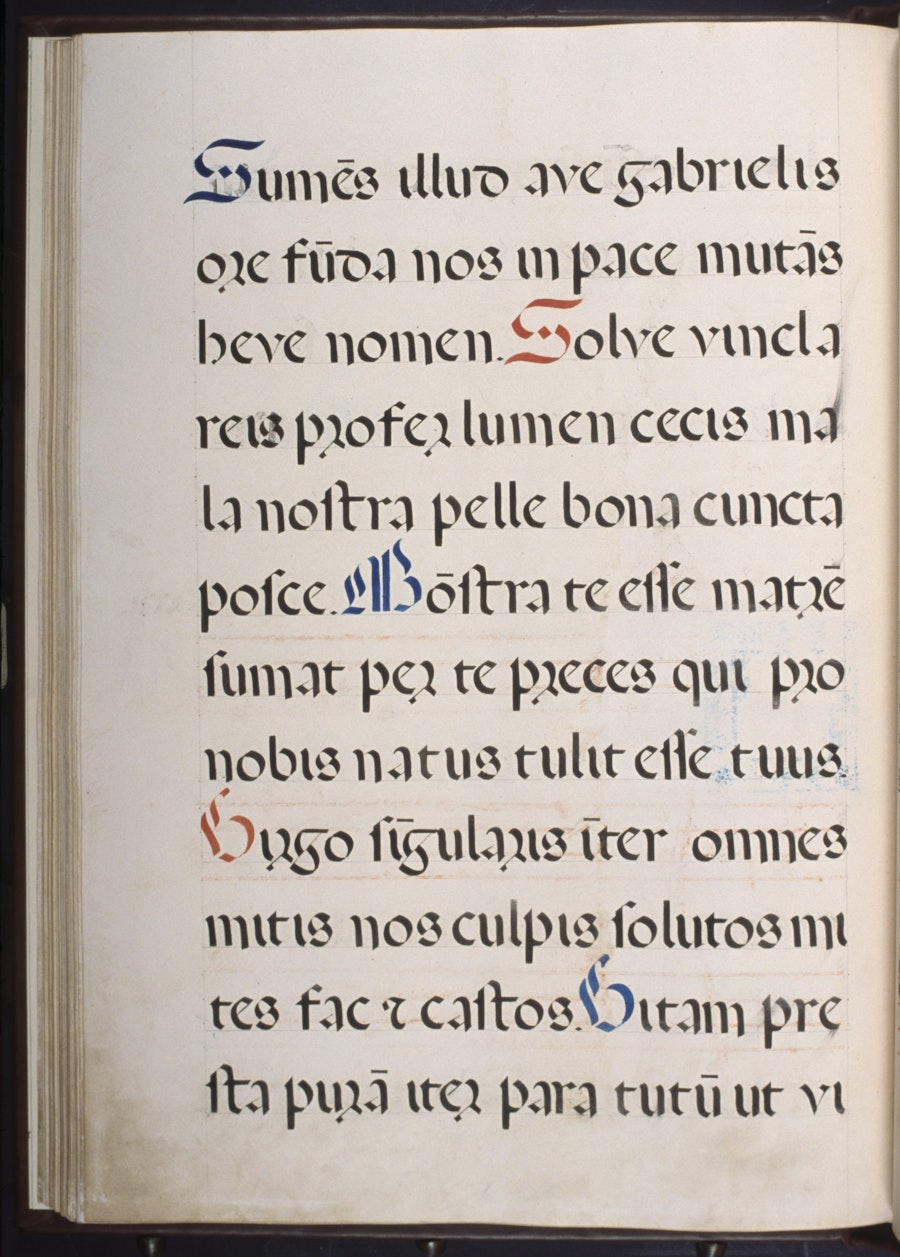 Sumēs illud ave gabrielis
ore fūda nos in pace mutās
heve nomen. Solve vincla
reis profer lumen cecis ma
la noſtra pelle bona cuncta
poſce. Mōſtra te eſſe matrē
ſumat per te preces qui pro
nobis natus tulit eſſe tuus.
Virgo ſīgularis īter omnes
mitis nos culpis ſolutos mi
tes fac ⁊ caſtos. Vitam pre
ſta purā iter para tutū ut vi